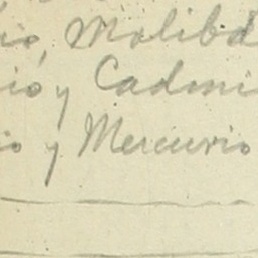 io, Molibd
io y Cadmi
io y Mercurio